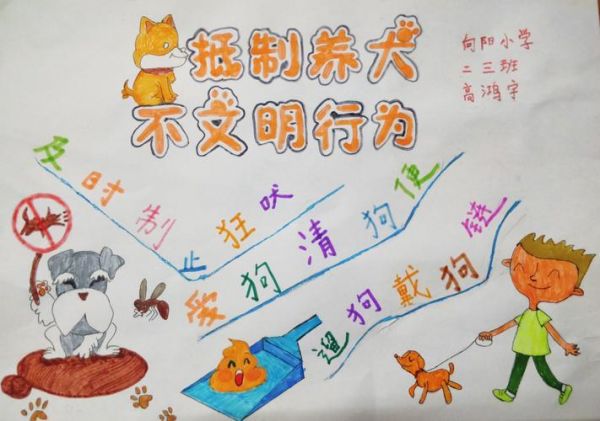 抵制养犬
不文明行为
向阳小学
二三班
高鸿宇
及时制止狂吠
爱狗清狗便
遛狗戴狗链